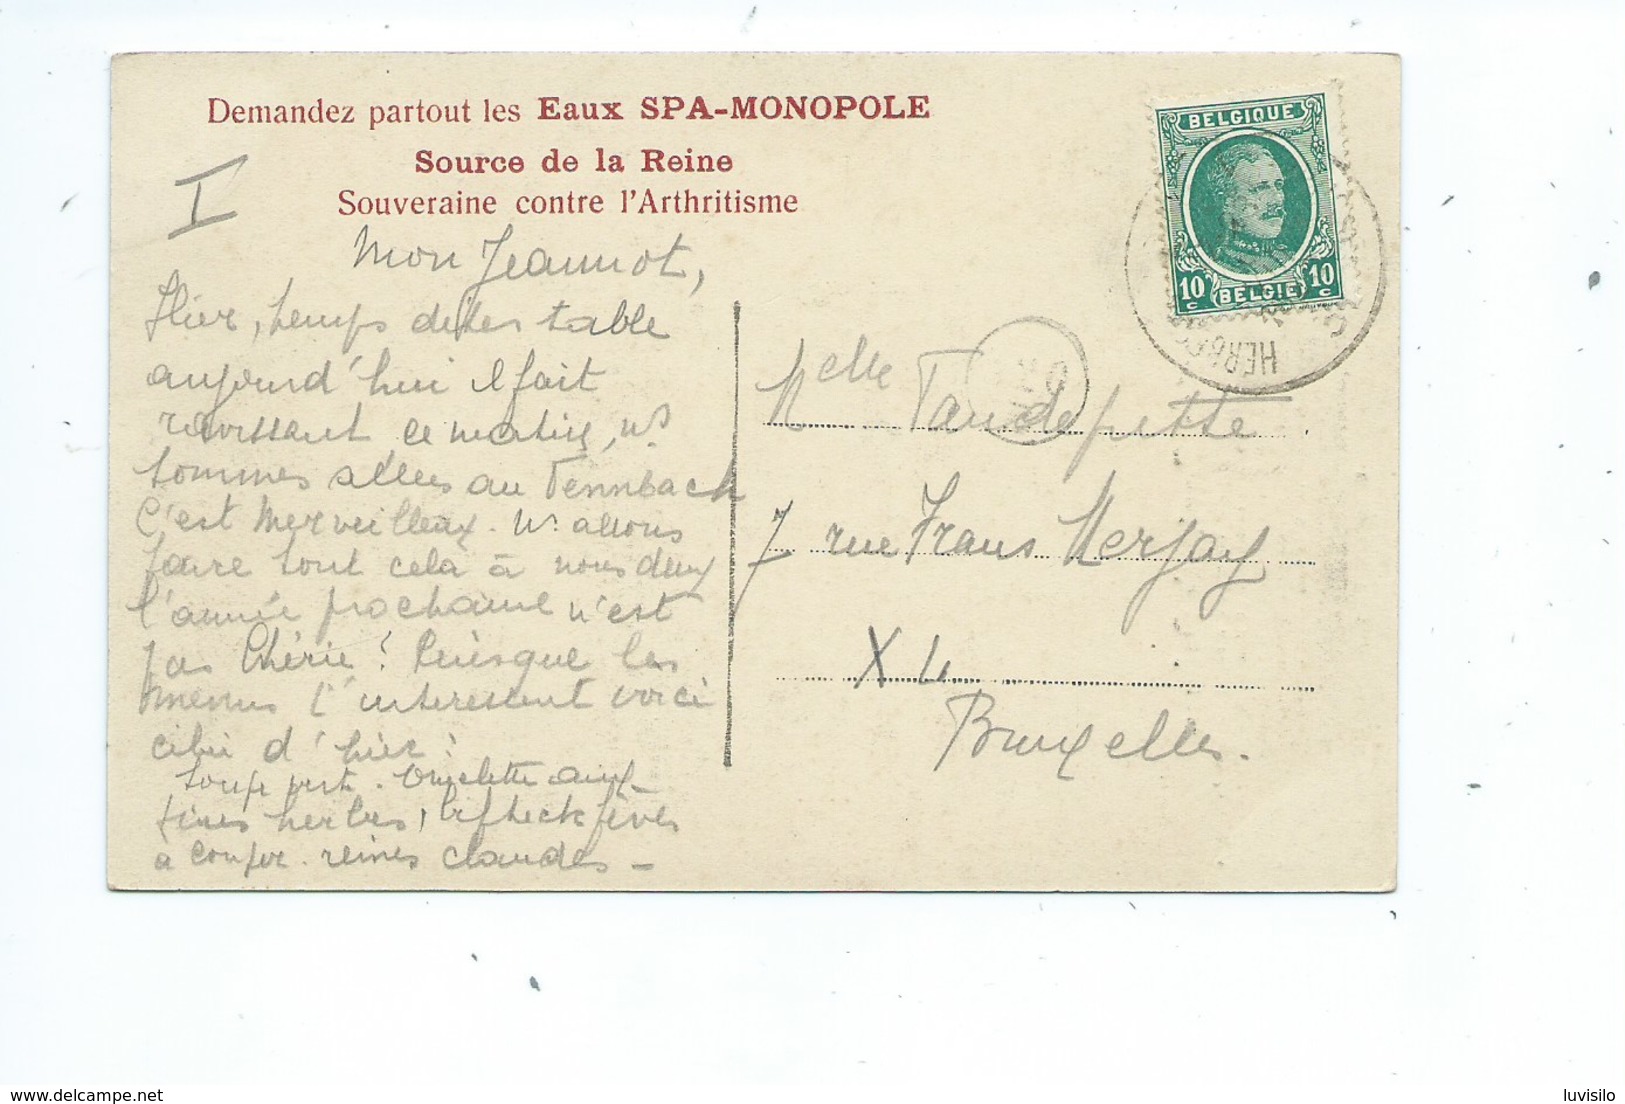 Demandez partout les Eaux SPA-MONOPOLE
Source de la Reine
Souveraine contre l'Arthritisme
I
Mon Jeannot,
Hier, temps détestable
aujourd'hui il fait
ravissant ce matin, ns
sommes allées au Fennbach
C'est merveilleux. Ns allons
faire tout cela à nous deux
l'année prochaine n'est
pas Chérie? Puisque les
menus t'intéressent voici
celui d'hier:
Soupe . Omelette aux
fines herbes, bifsteck fèves
. reines claudes -
BELGIQUE
10 c BELGIË 10 c
HERB
Melle Vandeputte
7 rue Frans Merjay
XL
Bruxelles.
delcampe.net
luvisilo